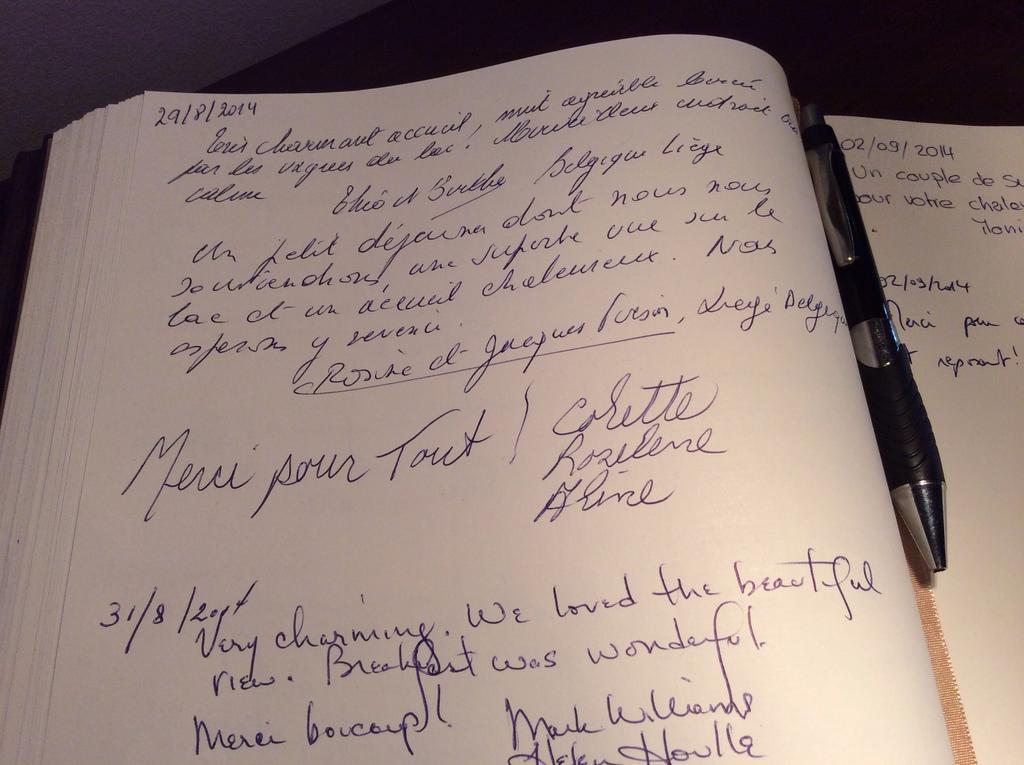 29/8/2014
Très charmant accueil, nuit agréable bercé
par les vagues du lac! Merveilleux endroit
calme
Belgique Liège
Un petit déjeuner dont nous nous
souviendrons, une superbe vue sur le
lac et un accueil chaleureux. Nous
espérons y revenir.
Rosine et Jacques Liège Belgique
Merci pour Tout! Colette
Roselène
Aline
31/8/2014
Very charming. We loved the beautiful
view. Breakfast was wonderful.
Merci boucoup! Mark Williams
Helen Houlle
02/09/2014
Un couple de
pour votre
02/09/2014
Merci pour